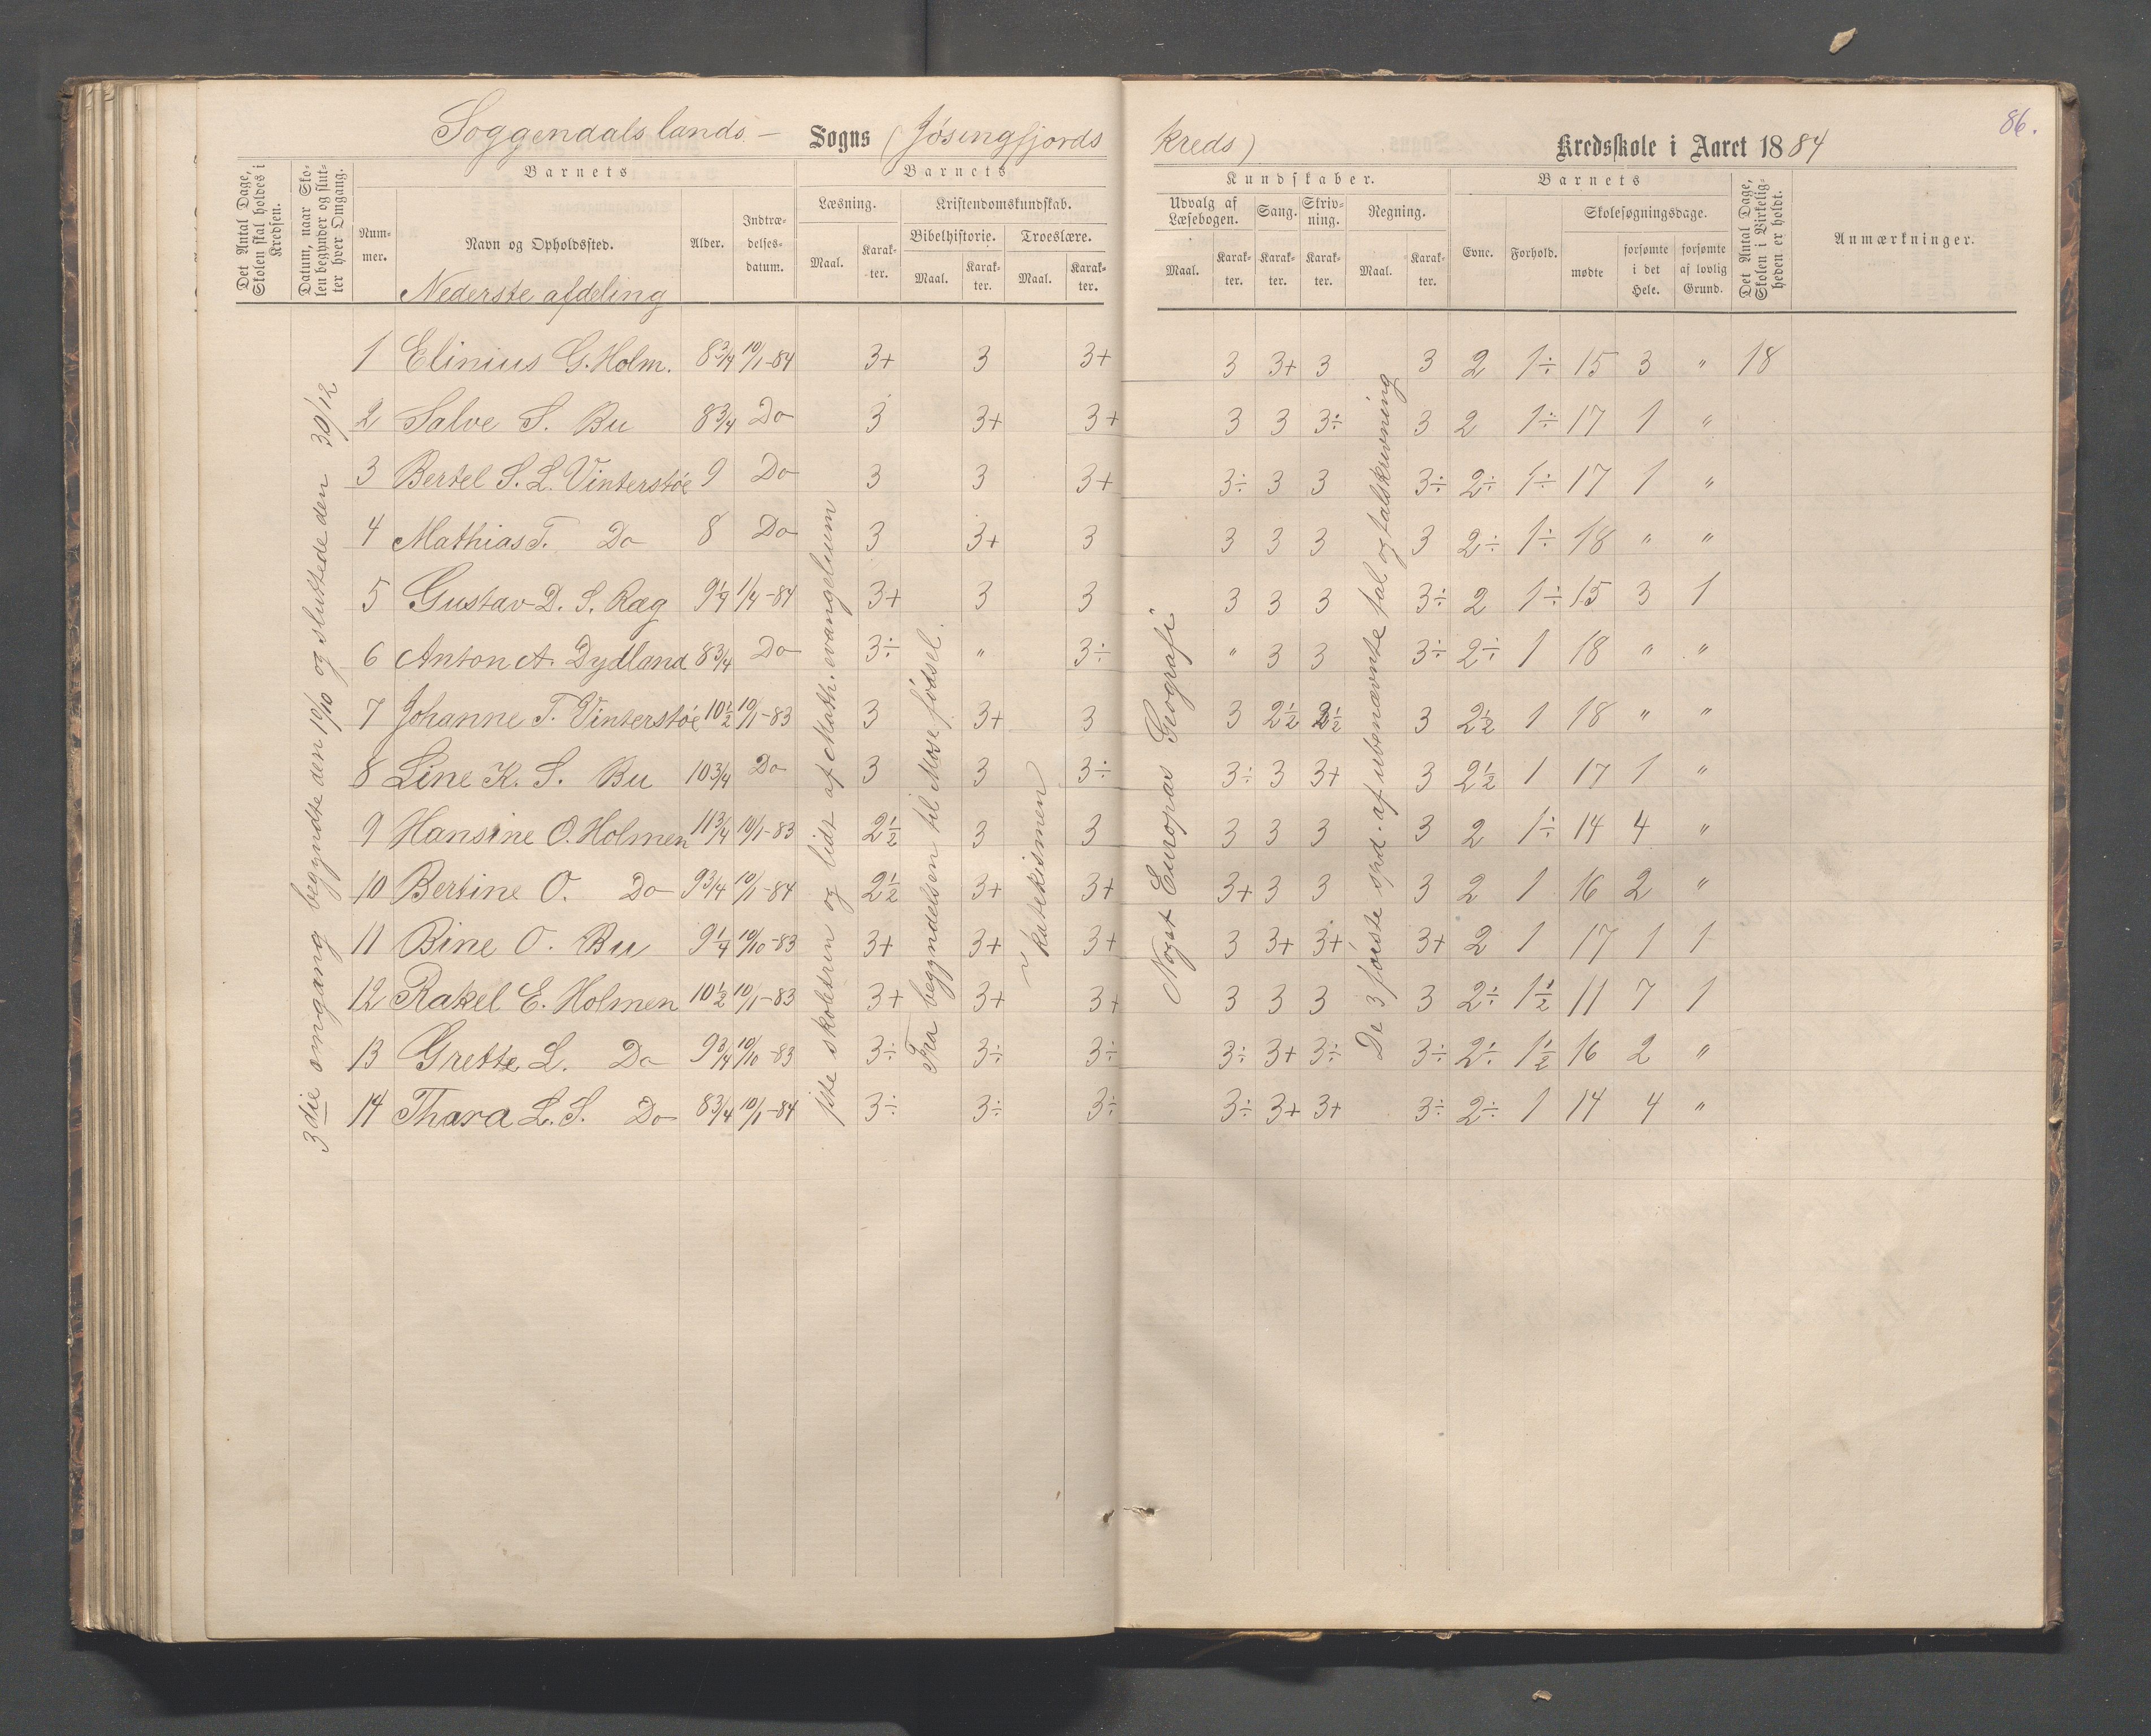 86.
Soggendals lands- Sogns (Jøsingfjords kreds) Kredsskole i Aaret 1884
Det Antal Dage, Skolen skal holdes i Kredsen.
Datum, naar Skolen begynder og slutter hver Omgang.
Barnets
Nummer.
Navn og Opholdssted.
Alder.
Indtrædelses-datum.
Barnets Kundskaber.
Læsning.
Maal.
Karakter.
Kristendomskundskab.
Bibelhistorie.
Maal.
Karakter.
Troeslære.
Maal.
Karakter.
Udvalg af Læsebogen.
Maal.
Karakter.
Sang.
Karakter.
Skrivning.
Karakter.
Regning.
Maal.
Karakter.
Barnets
Evne.
Forhold.
Skolesøgningsdage.
mødte
forsømte i det Hele.
forsømte af lovlig Grund.
Det Antal Dage, Skolen i Virkeligheden er holdt.
Anmærkninger.
Nederste afdeling
3die omgang begyndte den 10/10 og sluttede den 30/12
1 Elinius G. Holm. 8 3/4 10/1-84 3+ 3 3+ 3 3+ 3 3 2 1÷ 15 3 " 18
2 Salve S. Bu 8 3/4 Do 3 3+ 3+ 3 3 3÷ 3 2 1÷ 17 1 "
3 Bertel S. L. Vinterstøe 9 Do 3 3 3+ 3÷ 3 3 3÷ 2÷ 1÷ 17 1 "
4 Mathias T. Do 8 Do 3 3+ 3 3 3 3 3 2÷ 1÷ 18 " "
5 Gustav D. S.Ræg 9 1/4 1/4-84 3+ 3 3 3 3 3 3÷ 2 1÷ 15 3 1
6 Anton A. Dydland 8 3/4 Do 3÷ " 3÷ " 3 3 3÷ 2÷ 1 18 " "
7 Johanne T. Vinterstøe 10 1/2 10/1-83 3 3+ 3 3 2 1/2 2 1/2 3 2 1/2 1 18 " "
8 Line K. S. Bu 10 3/4 Do 3 3 3÷ 3÷ 3 3+ 3 2 1/2 1 17 1 "
9 Hansine O. Holmen 11 3/4 10/1-83 2 1/2 3 3 3 3 3 3 2 1÷ 14 4 "
10 Bertine O. Do 9 3/4 10/1-84 2 1/2 3+ 3+ 3+ 3 3 3 2 1 16 2 "
11 Bine O. Bu 9 1/4 10/10-83 3+ 3+ 3+ 3 3+ 3+ 3+ 2 1 17 1 1
12 Rakel E. Holmen 10 1/2 10/1-83 3+ 3+ 3+ 3 3 3 3 2÷ 1 1/2 11 7 1
13 Grette L. Do 9 3/4 10/10-83 3÷ 3÷ 3÷ 3÷ 3+ 3÷ 3÷ 2÷ 1 1/2 16 2 "
14 Thara L. S. Do 8 3/4 10/1-84 3÷ 3÷ 3÷ 3÷ 3+ 3+ 3÷ 2÷ 1 14 4 "
skoletrin og lidt af Math. evangelium
Fra begyndelsen til Mose fødsel.
i katekismen
Noget Europas Geografi
De 3 første spd. af ubenævnte tal og talskrivning